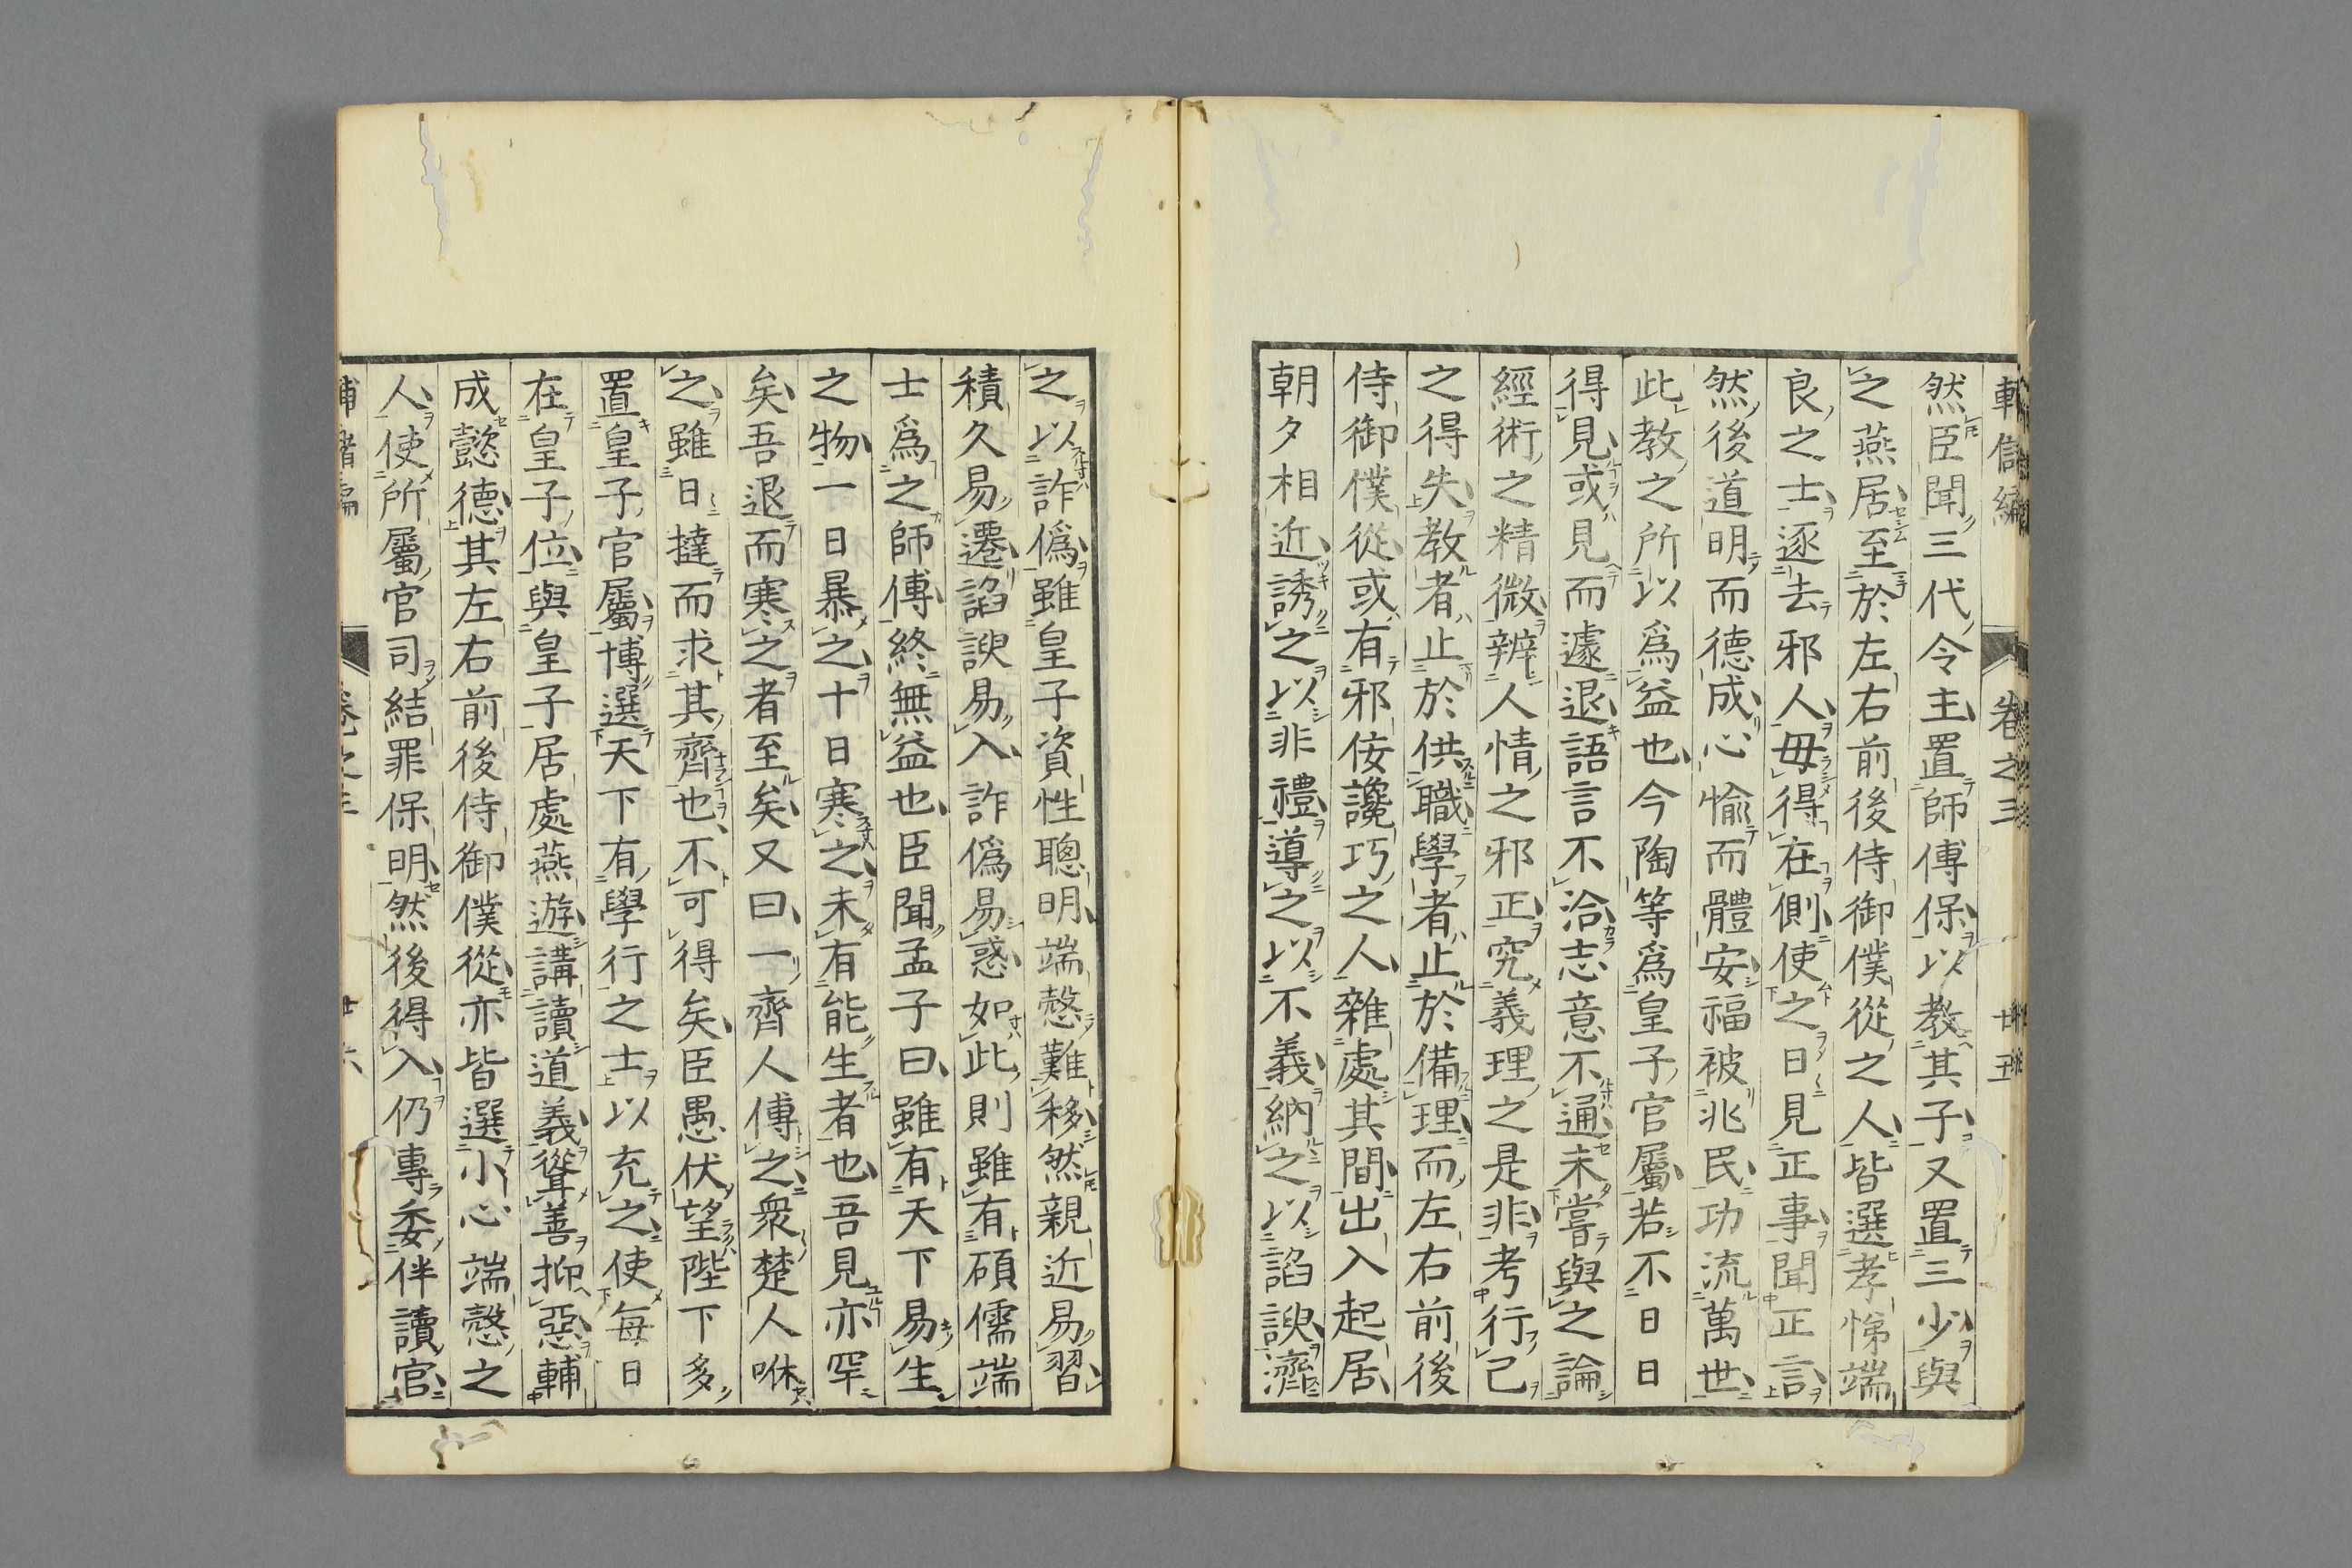 輔儲編 卷之三 廿五
然臣聞三代令主置師傅保以教其子又置三少與
之燕居至於左右前後侍御僕從之人皆選孝悌端
良之士逐去邪人毋得在側使之日見正事聞正言
然後道明而德成心愉而體安福被兆民功流萬世
此教之所以爲益也今陶等爲皇子官屬若不日日
得見或見而遽退語言不洽志意不通未嘗與之論
經術之精微辨人情之邪正究義理之是非考行己
之得失教者止於供職學者止於備理而左右前後
侍御僕從或有邪佞讒巧之人雜處其間出入起居
朝夕相近誘之以非禮導之以不義納之以諂諛濟
之以詐僞雖皇子資性聰明端愨難移然親近易習
積久易遷諂諛易入詐僞易惑如此則雖有碩儒端
士爲之師傅終無益也臣聞孟子曰雖有天下易生
之物一日暴之十日寒之未有能生者也吾見亦罕
矣吾退而寒之者至矣又曰一齊人傅之衆楚人咻
之雖日撻而求其齊也不可得矣臣愚伏望陛下多
置皇子官屬博選天下有學行之士以充之使每日
在皇子位與皇子居處燕遊講讀道義聳善抑惡輔
成懿德其左右前後侍御僕從亦皆選小心端愨之
人使所屬官司結罪保明然後得入仍專委伴讀官
輔儲編 卷之三 廿六